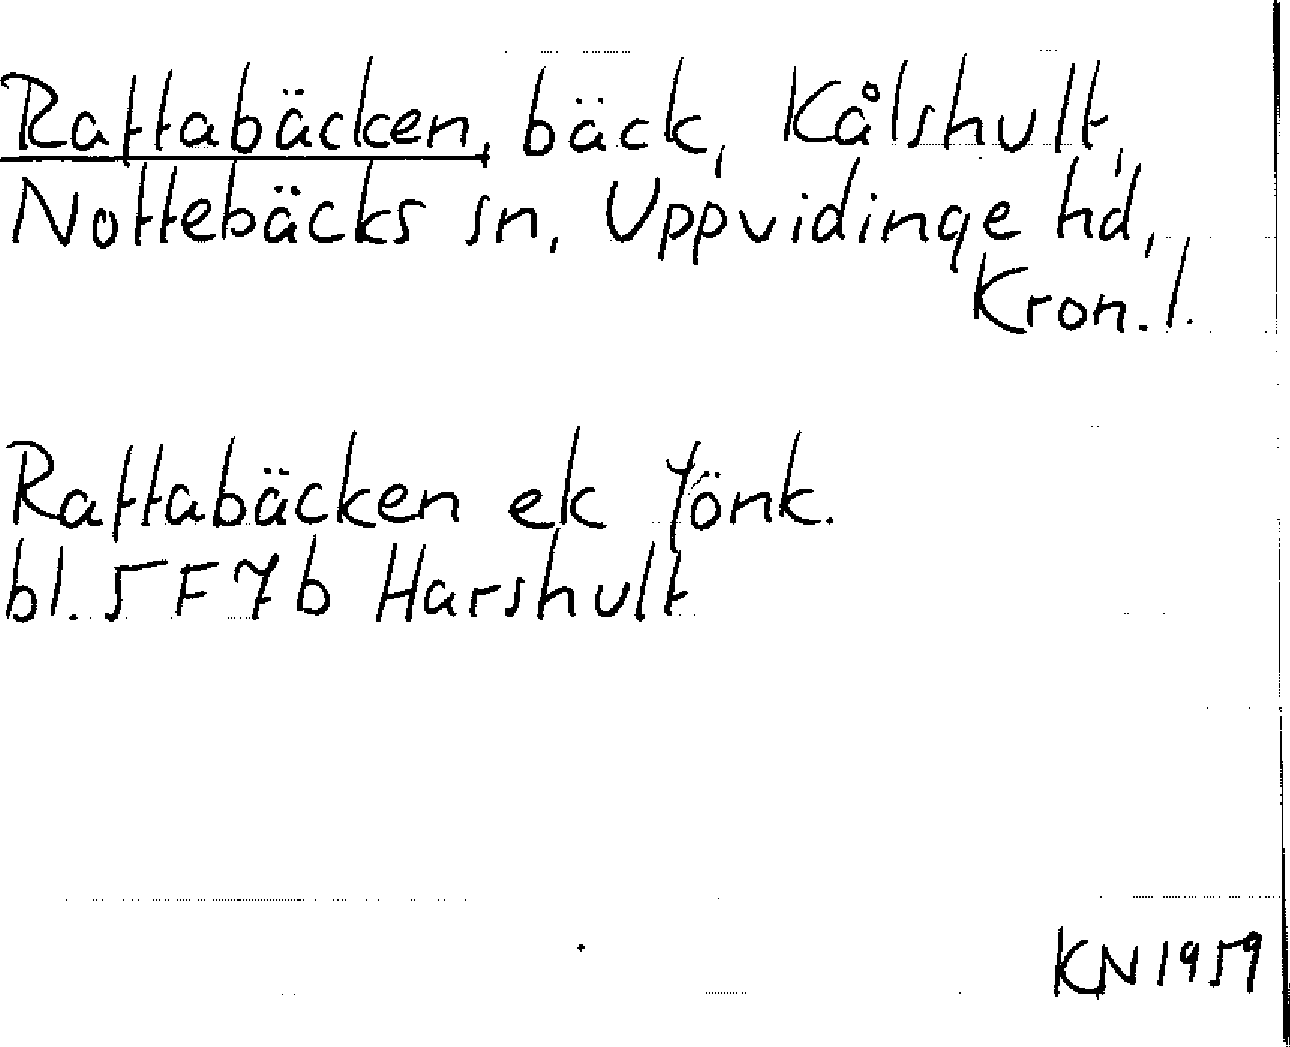 Rattabäcken, bäck, Kålshult,
Nottebäcks sn, Uppvidinge hd,
Kron. l.
Rattabäcken ek Jönk.
bl. 5F7b Harshult
KN 1959